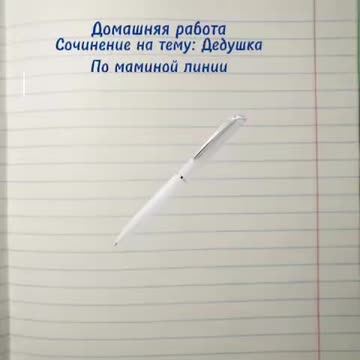 Домашняя работа
Сочинение на тему: Дедушка
По маминой линии